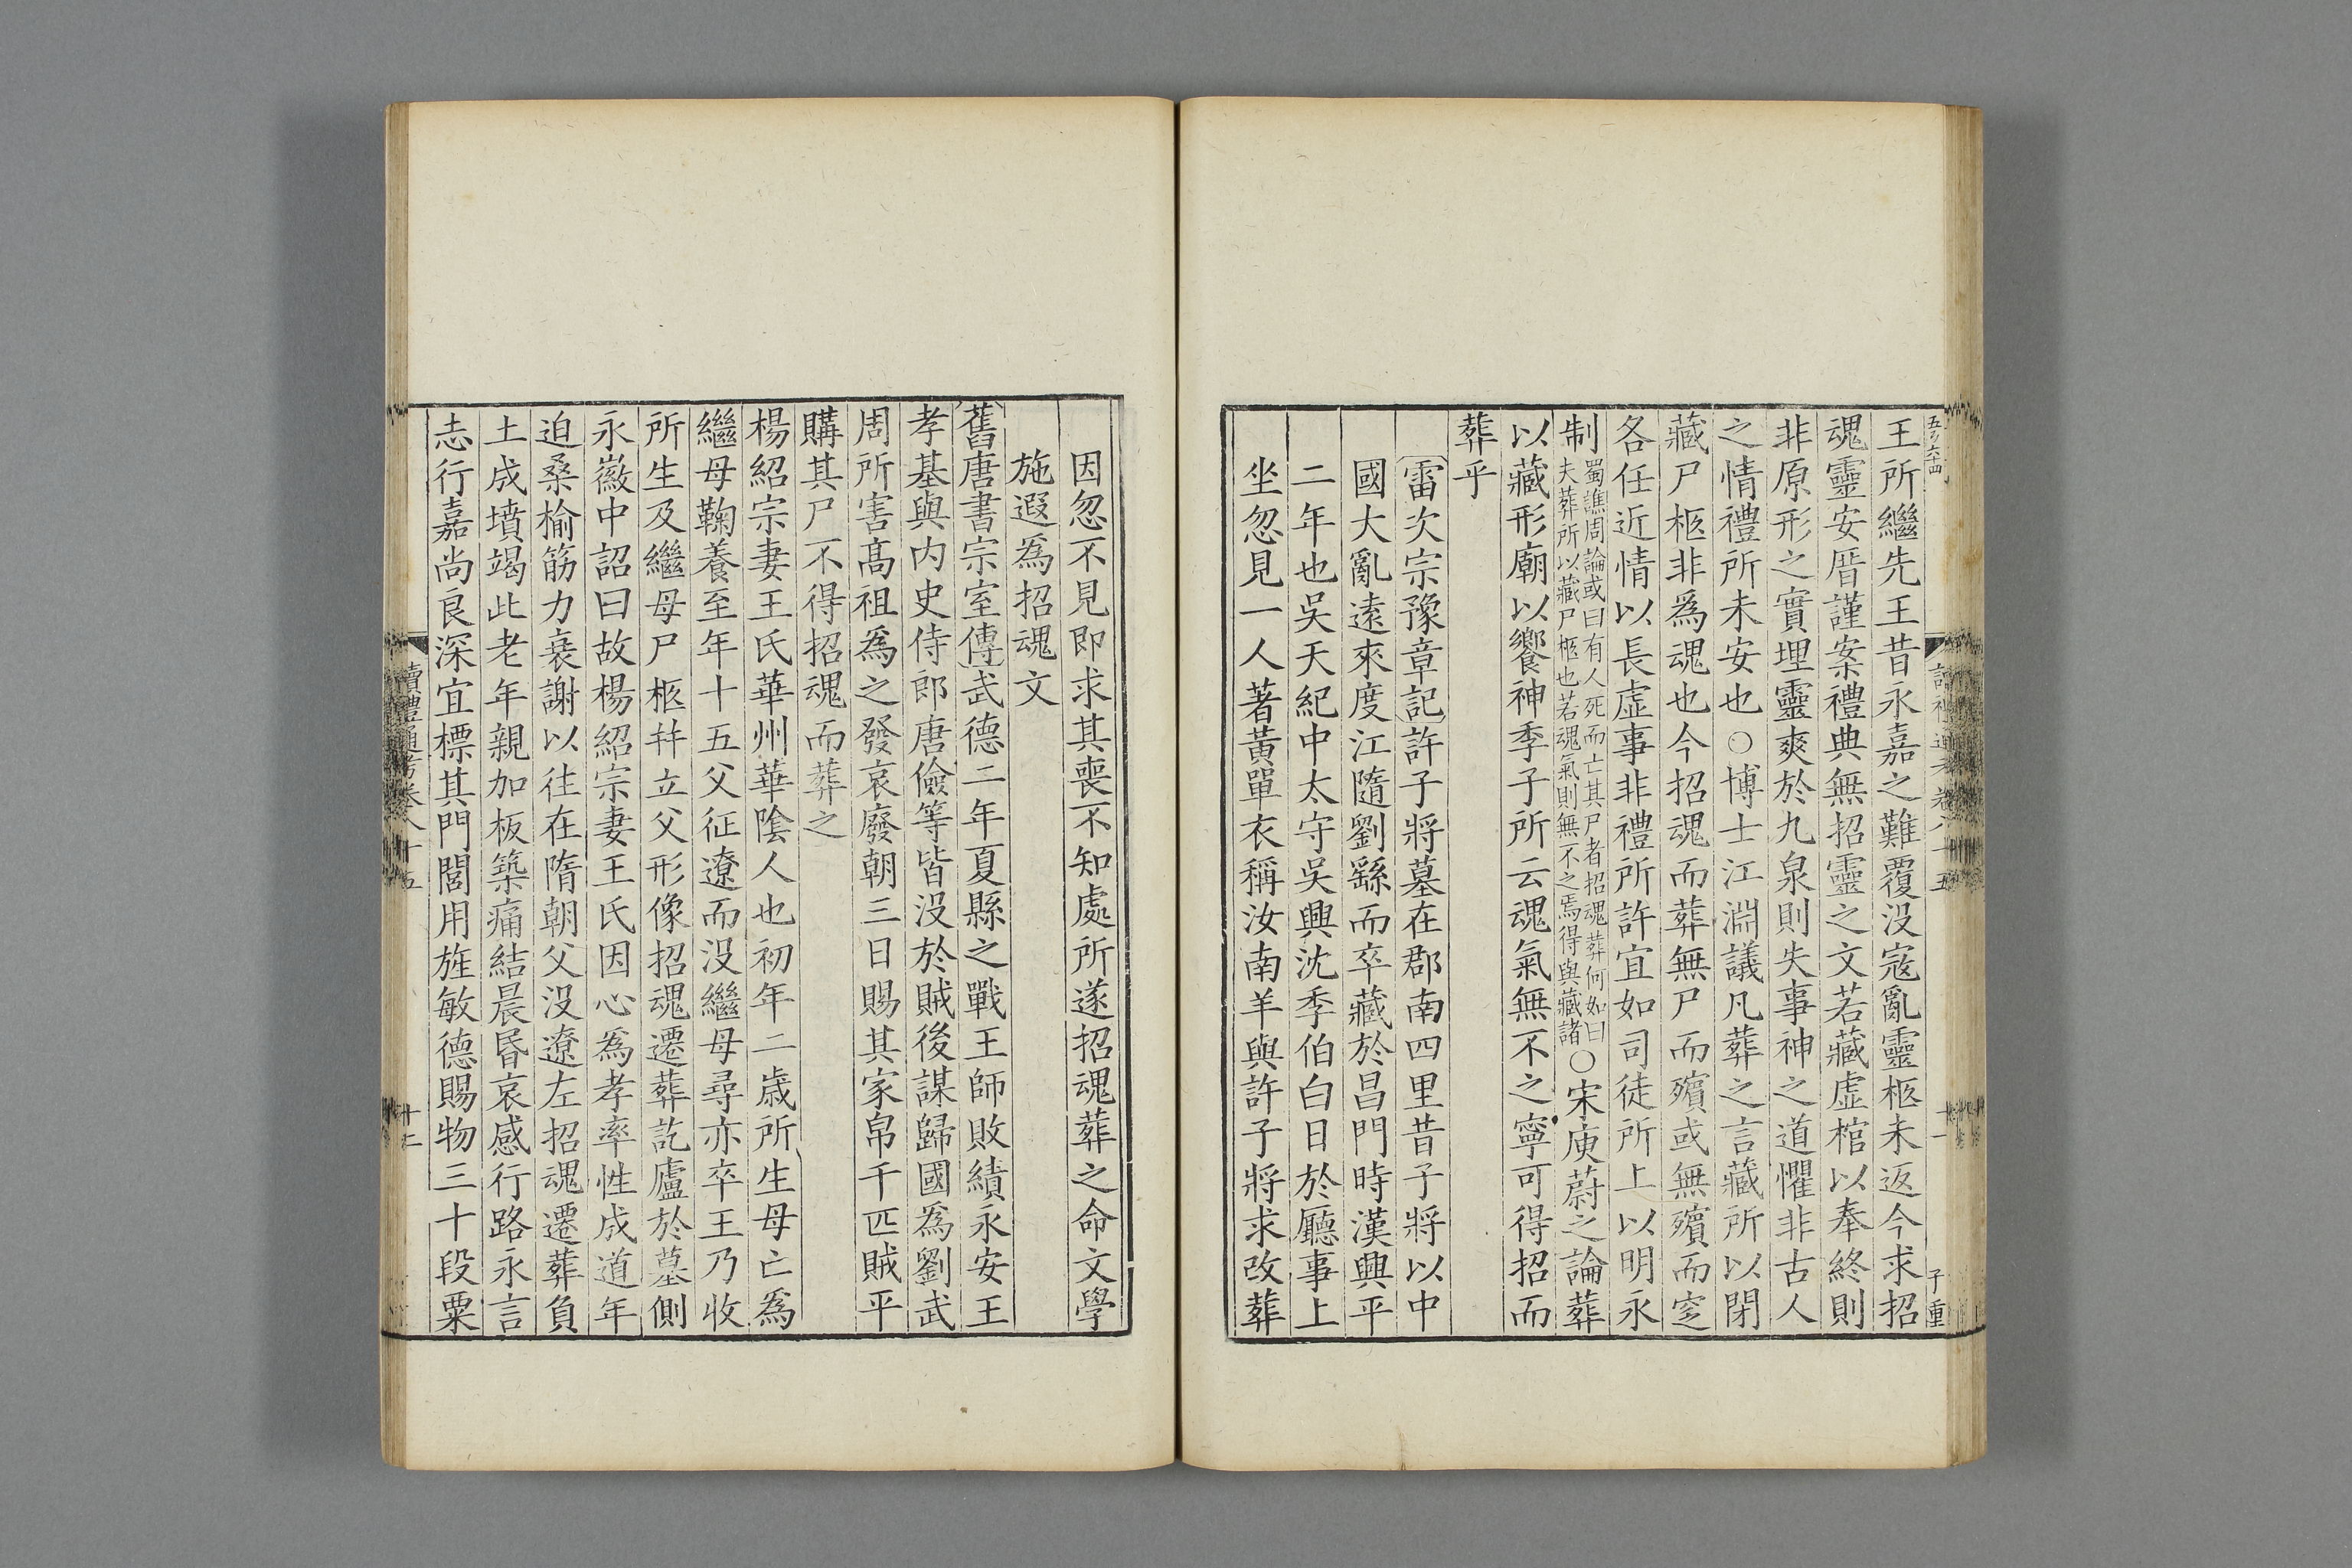 王所繼先王昔永嘉之難覆没寇亂靈柩未返今求招
魂靈安厝謹案禮典無招靈之文若藏虚棺以奉終則
非原形之實埋靈爽於九泉則失事神之道懼非古人
之情禮所未安也○博士江淵議凡葬之言藏所以閉
藏尸柩非爲魂也今招魂而葬無尸而殯或無殯而窆
各任近情以長虚事非禮所許宜如司徒所上以明永
制
蜀譙周論或曰有人死而亡其尸者招魂葬何如曰
夫葬所以藏尸柩也若魂氣則無不之焉得與藏諸
○宋庾蔚之論葬
以藏形廟以饗神季子所云魂氣無不之寧可得招而
葬乎
雷次宗豫章記許子將墓在郡南四里昔子將以中
國大亂遠來度江隨劉繇而卒藏於昌門時漢興平
二年也吳天紀中太守吳興沈季伯白日於廳事上
坐忽見一人著黃單衣稱汝南羊與許子將求改葬
因忽不見即求其喪不知處所遂招魂葬之命文學
施遐爲招魂文
舊唐書宗室傳武德二年夏縣之戰王師敗績永安王
孝基與内史侍郎唐儉等皆没於賊後謀歸國爲劉武
周所害髙祖爲之發哀廢朝三日賜其家帛千匹賊平
購其尸不得招魂而葬之
楊紹宗妻王氏華州華陰人也初年二歳所生母亡爲
繼母鞠養至年十五父征遼而没繼母尋亦卒王乃收
所生及繼母尸柩并立父形像招魂遷葬訖廬於墓側
永徽中詔曰故楊紹宗妻王氏因心爲孝率性成道年
迫桑榆筋力衰謝以往在隋朝父没遼左招魂遷葬負
土成墳竭此老年親加板築痛結晨昬哀感行路永言
志行嘉尚良深宜標其門閭用旌敏德賜物三十段粟
讀禮通考卷八十五